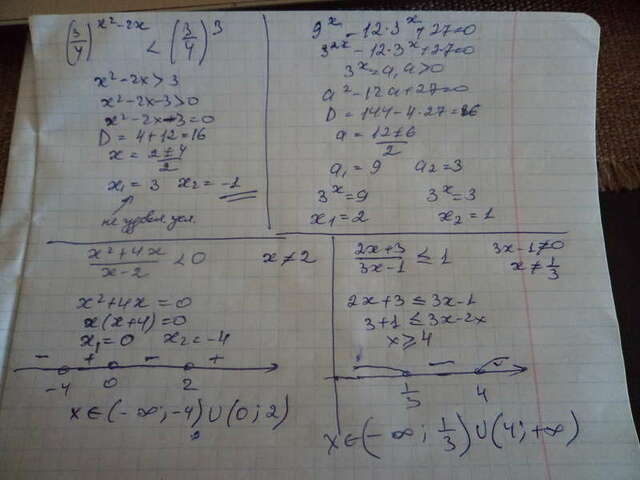 (3/4)^(x²-2x) < (3/4)^3
x²-2x>3
x²-2x-3>0
x²-2x-3=0
D=4+12=16
x=(2±4)/2
x₁=3 x₂=-1
не удовл усл
9^x-12·3^x+27=0
3^(2x)-12·3^x+27=0
3^x=a, a>0
a²-12a+27=0
D=144-4·27=36
a=(12±6)/2
a₁=9 a₂=3
3^x=9 3^x=3
x₁=2 x₂=1
(x²+4x)/(x-2)<0 x≠2
x²+4x=0
x(x+4)=0
x₁=0 x₂=-4
- + - +
-4 0 2
x∈(-∞;-4)∪(0;2)
(2x+3)/(3x-1)≤1 3x-1≠0
x≠1/3
2x+3≤3x-1
3+1≤3x-2x
x≥4
1/3 4
x∈(-∞;1/3)∪(4;+∞)